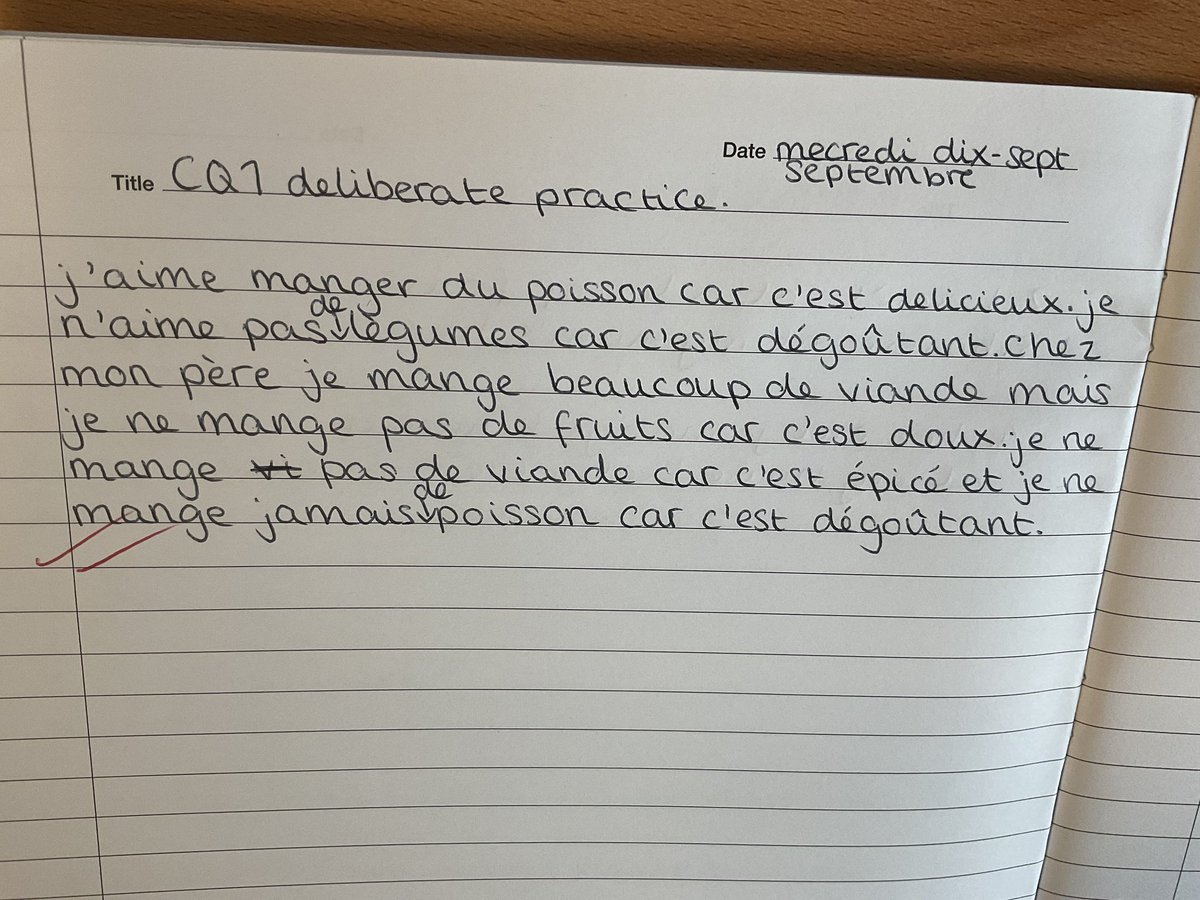 Date mecredi dix-sept
septembre
Title CQ1 deliberate practice.
j'aime manger du poisson car c'est delicieux. je
n'aime pas de légumes car c'est dégoûtant. chez
mon père je mange beaucoup de viande mais
je ne mange pas de fruits car c'est doux. je ne
mange vi pas de viande car c'est épicé et je ne
mange jamais de poisson car c'est dégoûtant.